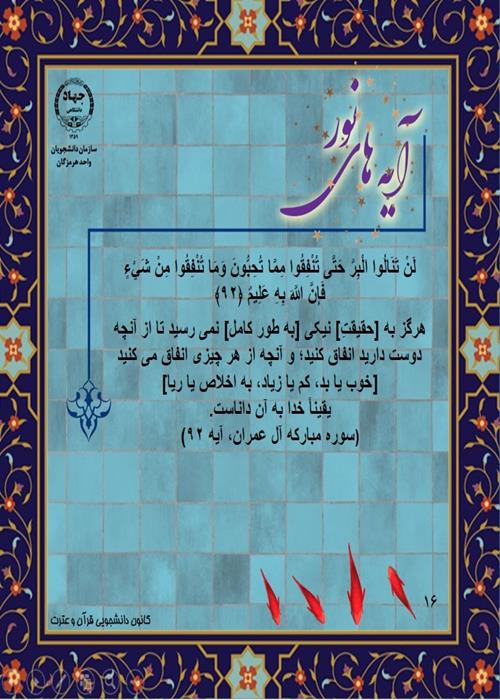 جهاد
دانشگاهی
۱۳۵۹
سازمان دانشجویان
واحد هرمزگان
آیه های نور
لَنْ تَنَالُوا الْبِرَّ حَتَّى تُنْفِقُوا مِمَّا تُحِبُّونَ وَمَا تُنْفِقُوا مِنْ شَيْءٍ
فَإِنَّ اللَّهَ بِهِ عَلِيمٌ ﴿۹۲﴾
هرگز به [حقیقتِ] نیکی [به طور کامل] نمی رسید تا از آنچه
دوست دارید انفاق کنید؛ و آنچه از هر چیزی انفاق می کنید
[خوب یا بد، کم یا زیاد، به اخلاص یا ریا]
یقیناً خدا به آن داناست.
(سوره مبارکه آل عمران، آیه ۹۲)
۱۶
کانون دانشجویی قرآن و عترت